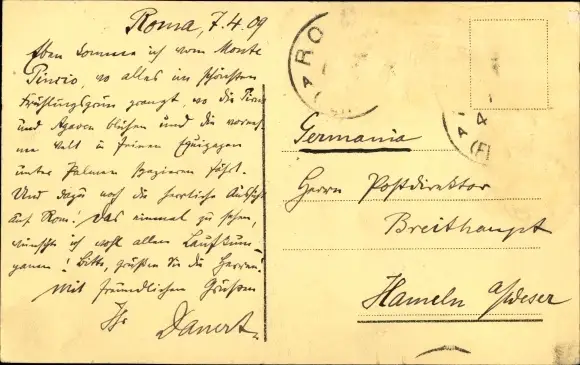 Roma, 7.4.09
Eben komme ich vom Monte
Pincio, wo alles im schönsten
Frühlingsgrün prangt, wo die
und Agaven blühen und die vorneh-
me Welt in feinen Equipagen
unter Palmen spazieren fährt.
Und dazu noch die herrliche Aussicht
auf Rom! Das einmal zu sehen,
wünschte ich wohl allen
! Bitte, grüßen Sie die Herren!
Mit freundlichen Grüßen
Ihr Danert.
RO
Germania
Herrn Postdirektor
Breithaupt
Hameln a/Weser